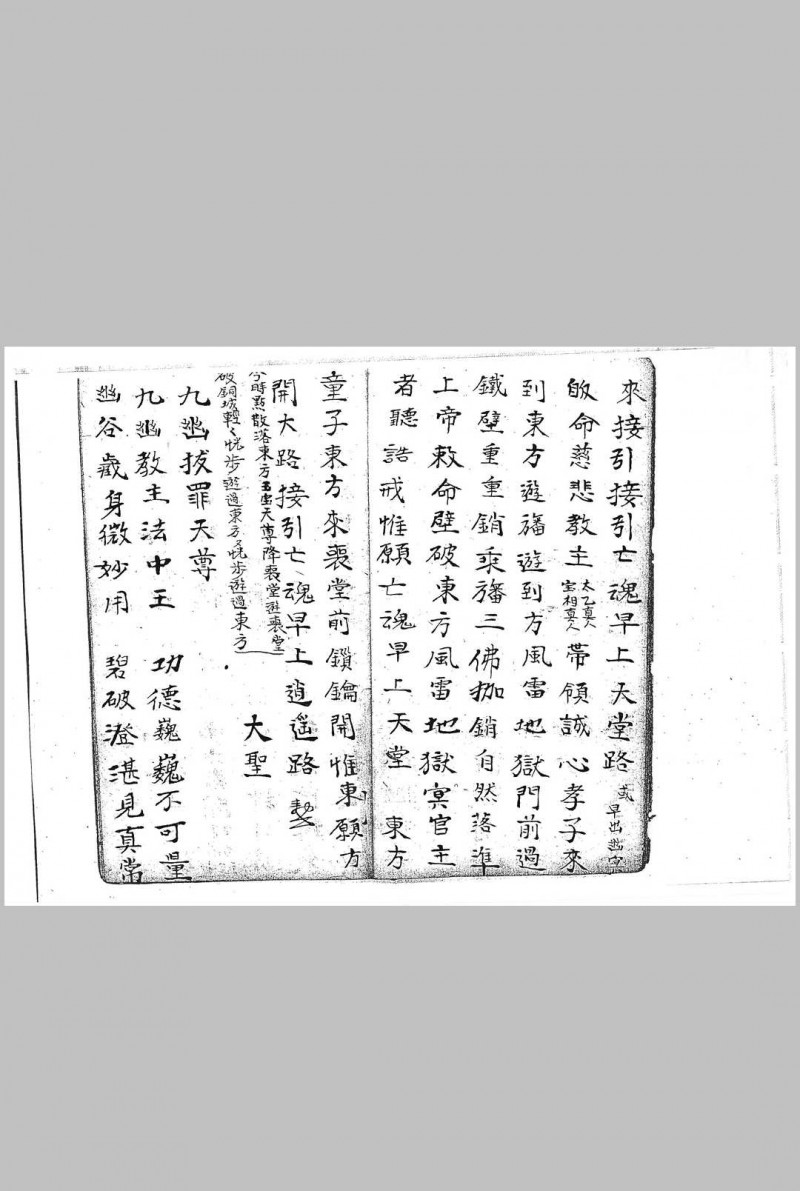 來接引接引亡魂早上天堂路 或早出幽
皈命慈悲教主 太乙真人 宝相真人 帶領誠心孝子來
到東方遊旛遊到方風雷地獄門前過
鐵壁重重銷乘旛三佛枷銷自然落準
上帝敕命壁破東方風雷地獄冥官主
者聽誥戒惟願亡魂早上天堂 東方
童子東方來裵堂前鎖鑰開惟東願方
開大路接引亡魂早上逍遥路
兮時點散落東方玉宝天尊降裵堂遊裵堂
破銅城輕々恍歩遊過東方又恍歩遊過東方
大聖
九幽拔罪天尊
九幽教主法中王 功德巍巍不可量
幽谷藏身微妙用 碧破澄湛見真常